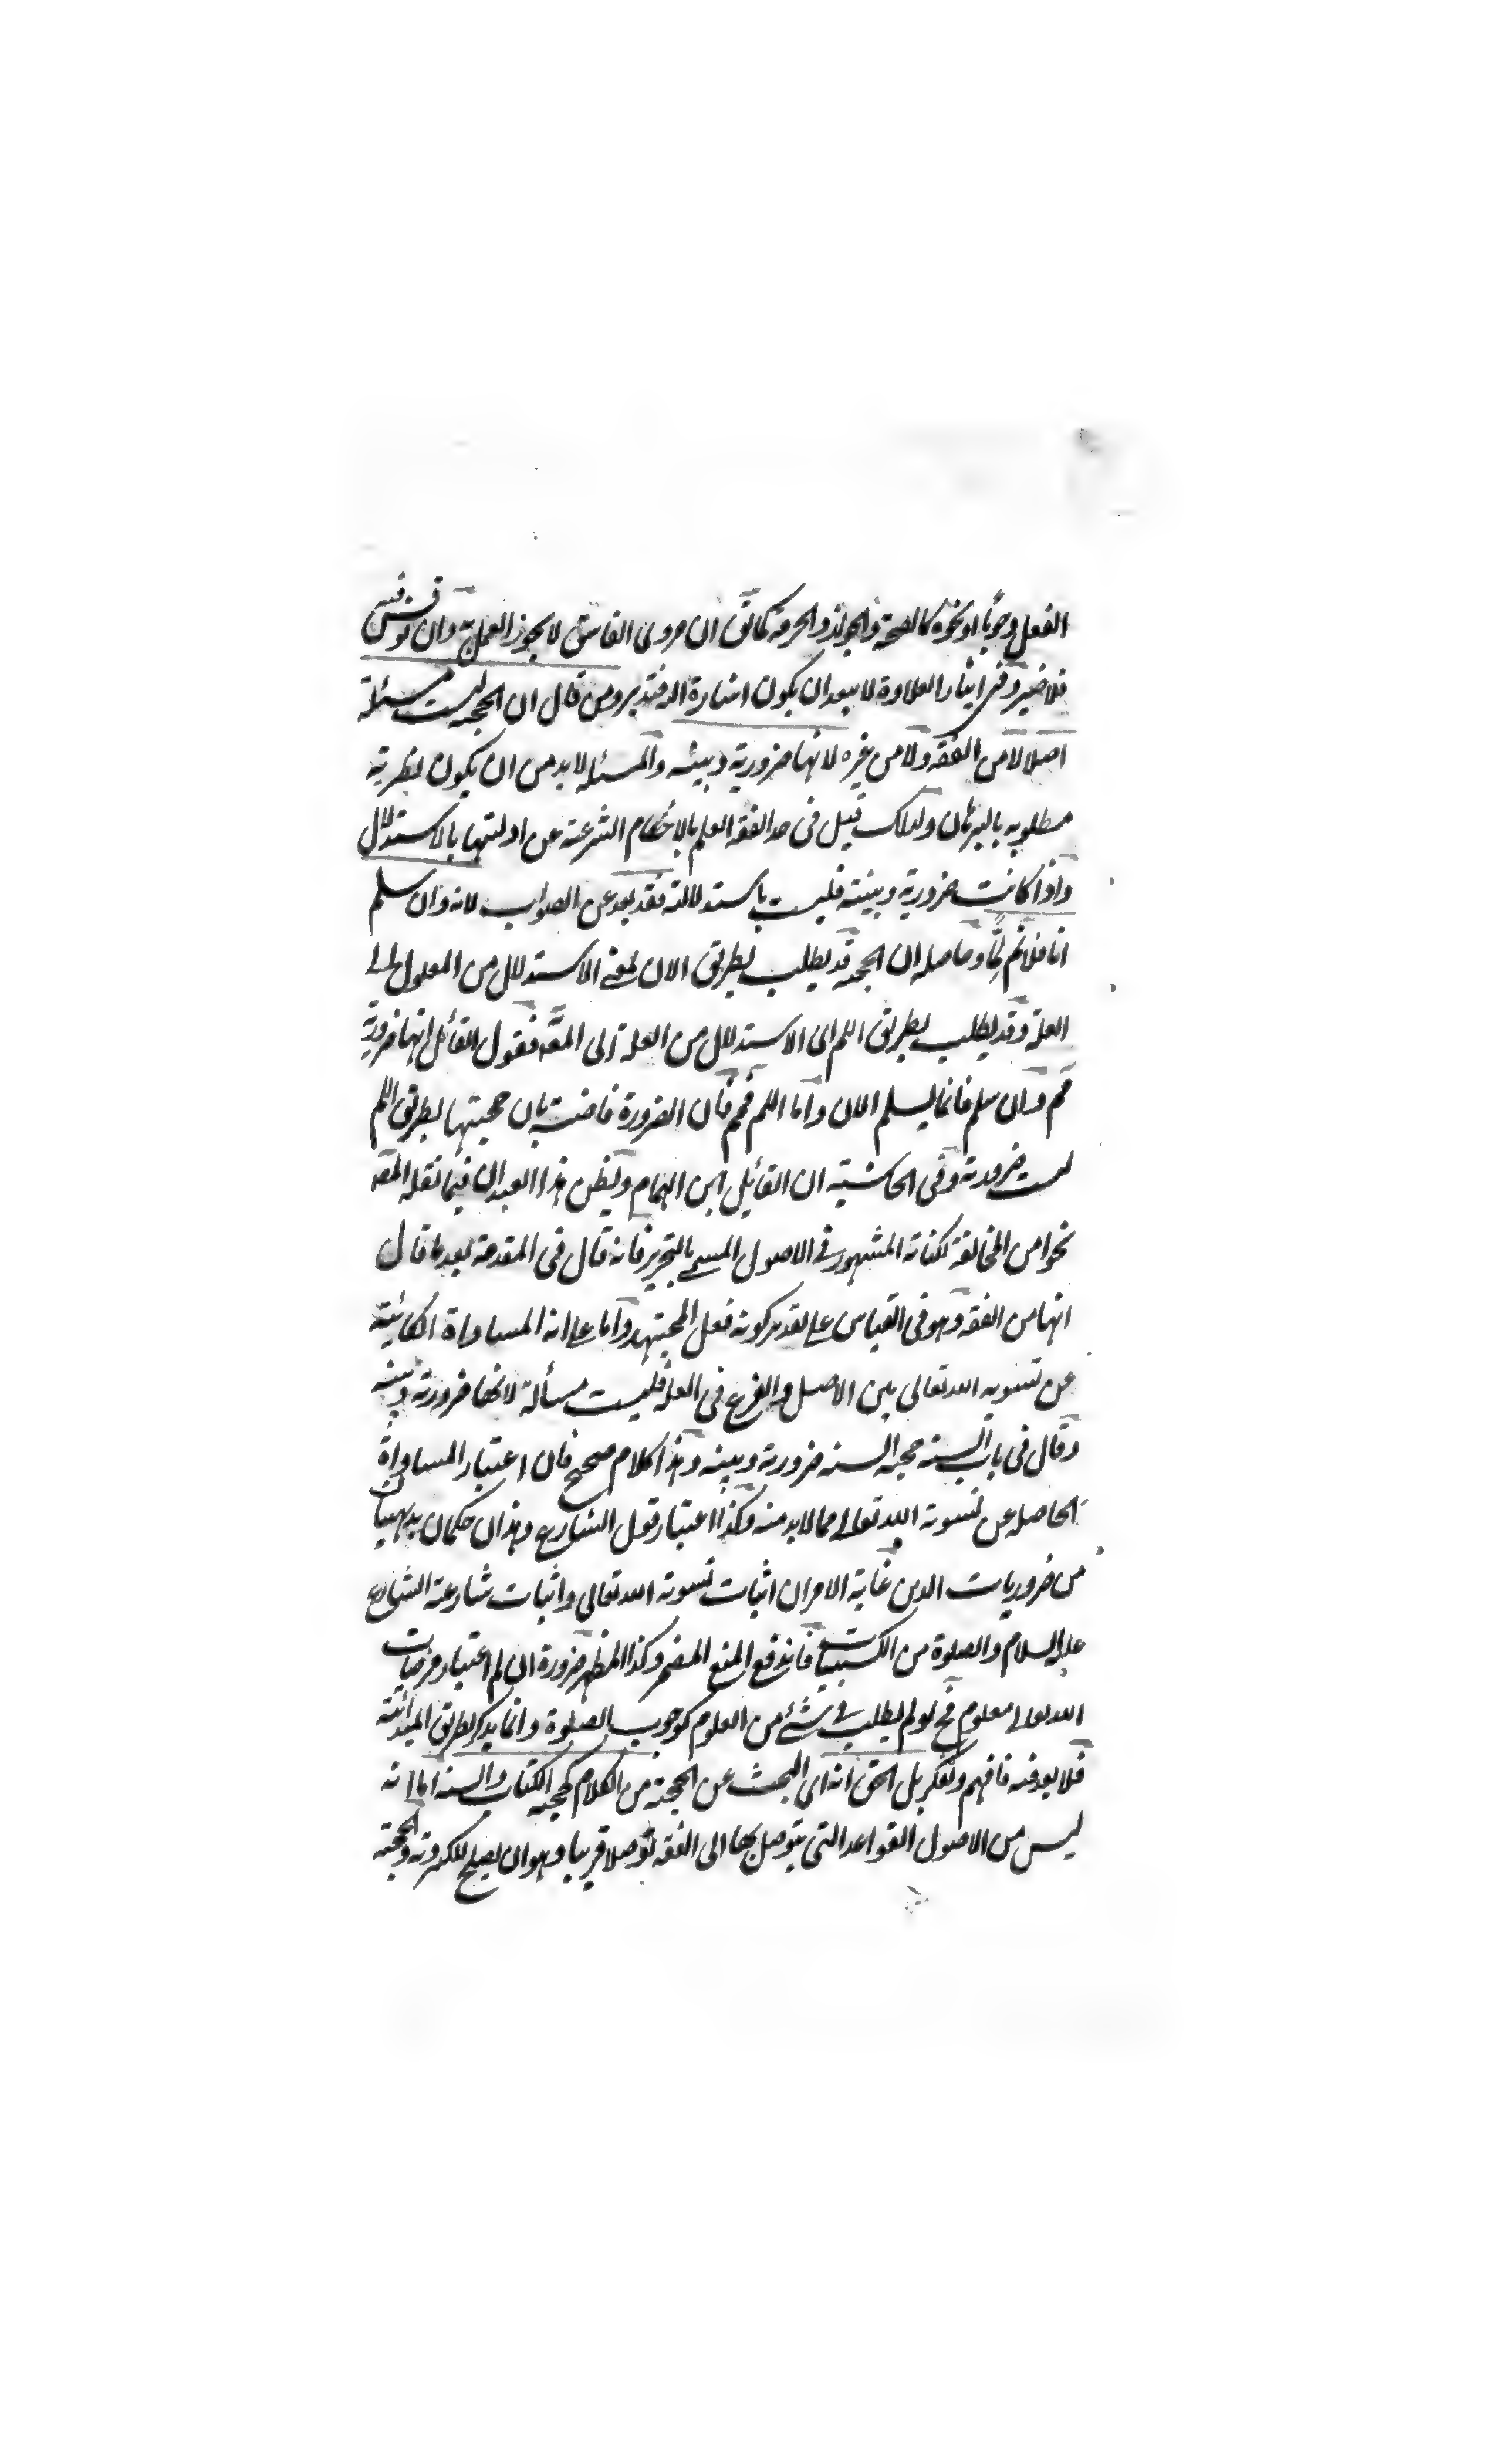 الفعل وجوبا او نحوه كالصحة والجواز والحرمة كما يق ان مروى الفاسق لا يجوز العمل به وان نوقش فيه
فلا ضير وفى ايثار العلاوة لا يبعد ان يكون اشارة اليه فتدبر ومن قال ان الحجية ليست مسئلة
اصلا لا من الفقه ولا من غيره لانها ضرورية دينية والمسئلة لا بد من ان يكون نظرية
مطلوبه بالبرهان ولذلك قيل فى حد الفقه العلم بالاحكام الشرعية عن ادلتها بالاستدلال
واذا كانت ضرورية دينية فليست باستدلالية فقد بعد عن الصواب لانه وان سلم
انا فلا نم لما وحاصله ان الحجية قد يطلب بطريق الان يعنے الاستدلال من المعلول الے
العلة وقد يطلب بطريق اللم اى الاستدلال من العلة الى المعه فقول القائل انها ضرورية
مم وان سلم فانما يسلم الان واما اللم فمم فان الضرورة قاضية بان حجيتها بطريق اللم
ليست ضرورية وفى الحاشية ان القائل ابن الهمام ويظن هذا العبد ان فيما نقله المصه
نحوا من المخالفة لكتابه المشهور فے الاصول المسمے بالتحرير فانه قال فى المقدمة بعد ما قال
انها من الفقه وهو فى القياس علے تقدير كونه فعل المجتهد واما علے انه المساواة الكائنة
عن تسويه الله تعالى بين الاصل والفرع فى العلة فليست مسألة لانها ضرورية دينيه
وقال فى باب السنه حجيه السنه ضرورية دينيه وهذا كلام صحيح فان اعتبار المساواة
الحاصله عن تسوية الله تعالے مما لا بد منه وكذا اعتبار قول الشارع وهذان حكمان بديهيان
من ضروريات الدين غاية الامر ان اثبات تسوية الله تعالى واثبات شارعية الشارع
عليه السلام والصلوة من الكسبيات فاندفع المنع المضمر وكذا المظهر ضرورة ان لم اعتبار مرضيات
الله تعالے معلوم فح لو لم يطلب فے شئ من العلوم كوجوب الصلوة وانما يذكر بطريق المبدائية
فلا بعد فيه فافهم وتفكر بل الحق انه اى البحث عن الحجية من الكلام كحجيه الكتاب والسنه اما انه
ليس من الاصول القواعد التى يتوصل بها الى الفقه توصلا قريبا وهو ان يصلح للكبروية والحجية